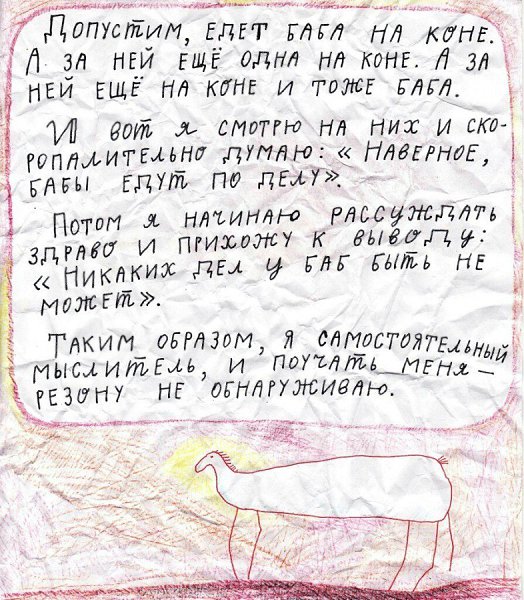 Допустим, едет баба на коне.
А за ней ещё одна на коне. А за
ней ещё на коне и тоже баба.
И вот я смотрю на них и ско-
ропалительно думаю: « Наверное,
бабы едут по делу».
Потом я начинаю рассуждать
здраво и прихожу к выводу:
« Никаких дел у баб быть не
может».
Таким образом, я самостоятельный
мыслитель, и поучать меня —
резону не обнаруживаю.